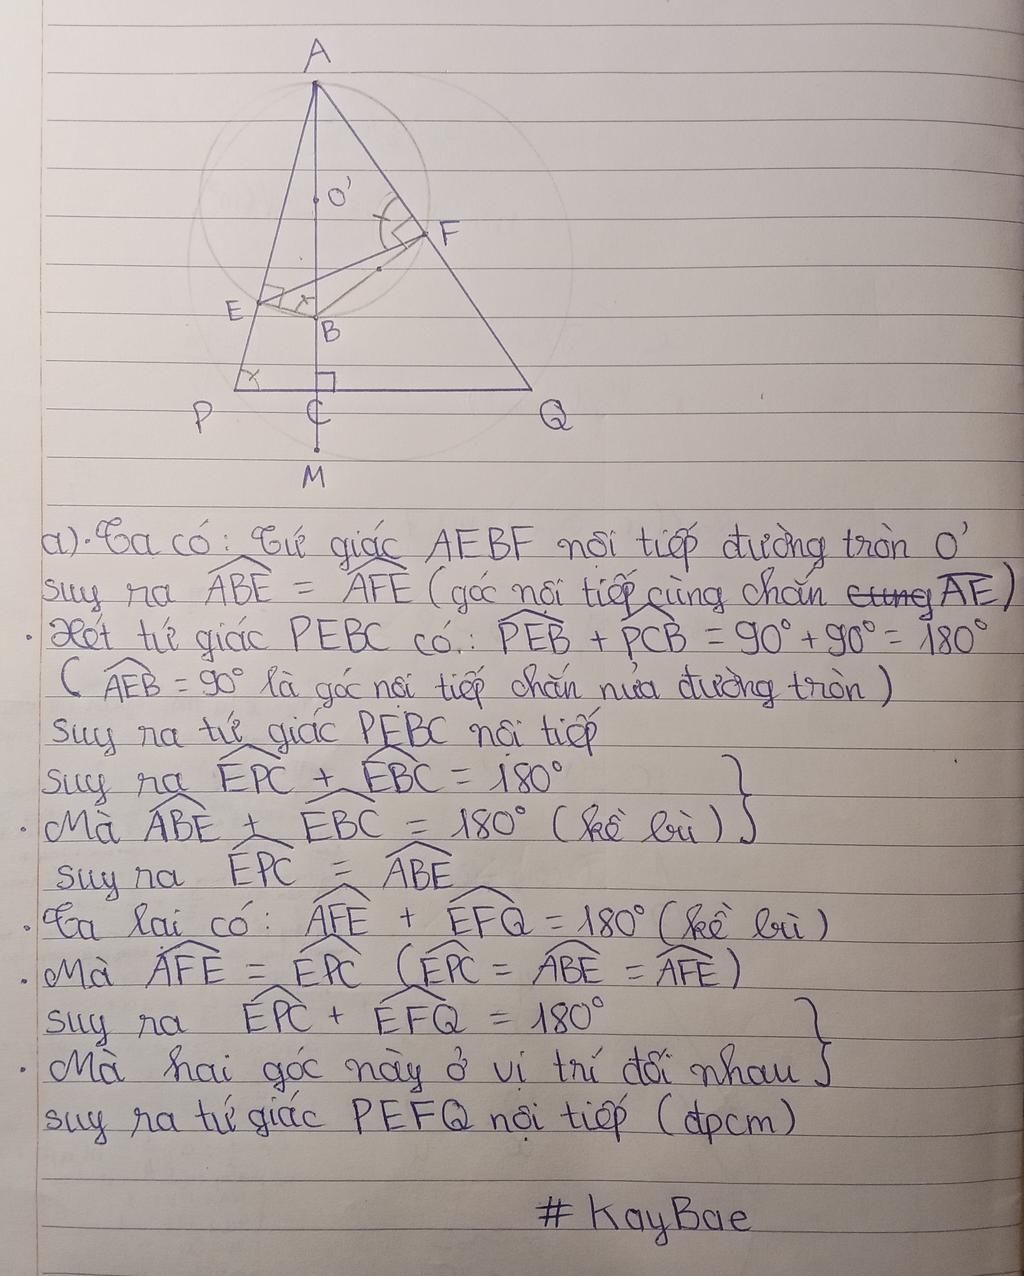 A
O'
F
E
B
P
C
Q
M
a). Ta có: Tứ giác AEBF nội tiếp đường tròn O'
suy ra ABE = AFE (góc nội tiếp cùng chắn cung AE)
. Xét tứ giác PEBC có: PEB + PCB = 90° + 90° = 180°
( AEB = 90° là góc nội tiếp chắn nửa đường tròn )
suy ra tứ giác PEBC nội tiếp
suy ra EPC + EBC = 180° }
. Mà ABE + EBC = 180° (kề bù)
suy ra EPC = ABE
. Ta lại có: AFE + EFQ = 180° (kề bù)
. Mà AFE = EPC (EPC = ABE = AFE)
suy ra EPC + EFQ = 180° }
. Mà hai góc này ở vị trí đối nhau
suy ra tứ giác PEFQ nội tiếp (đpcm)
# KayBae